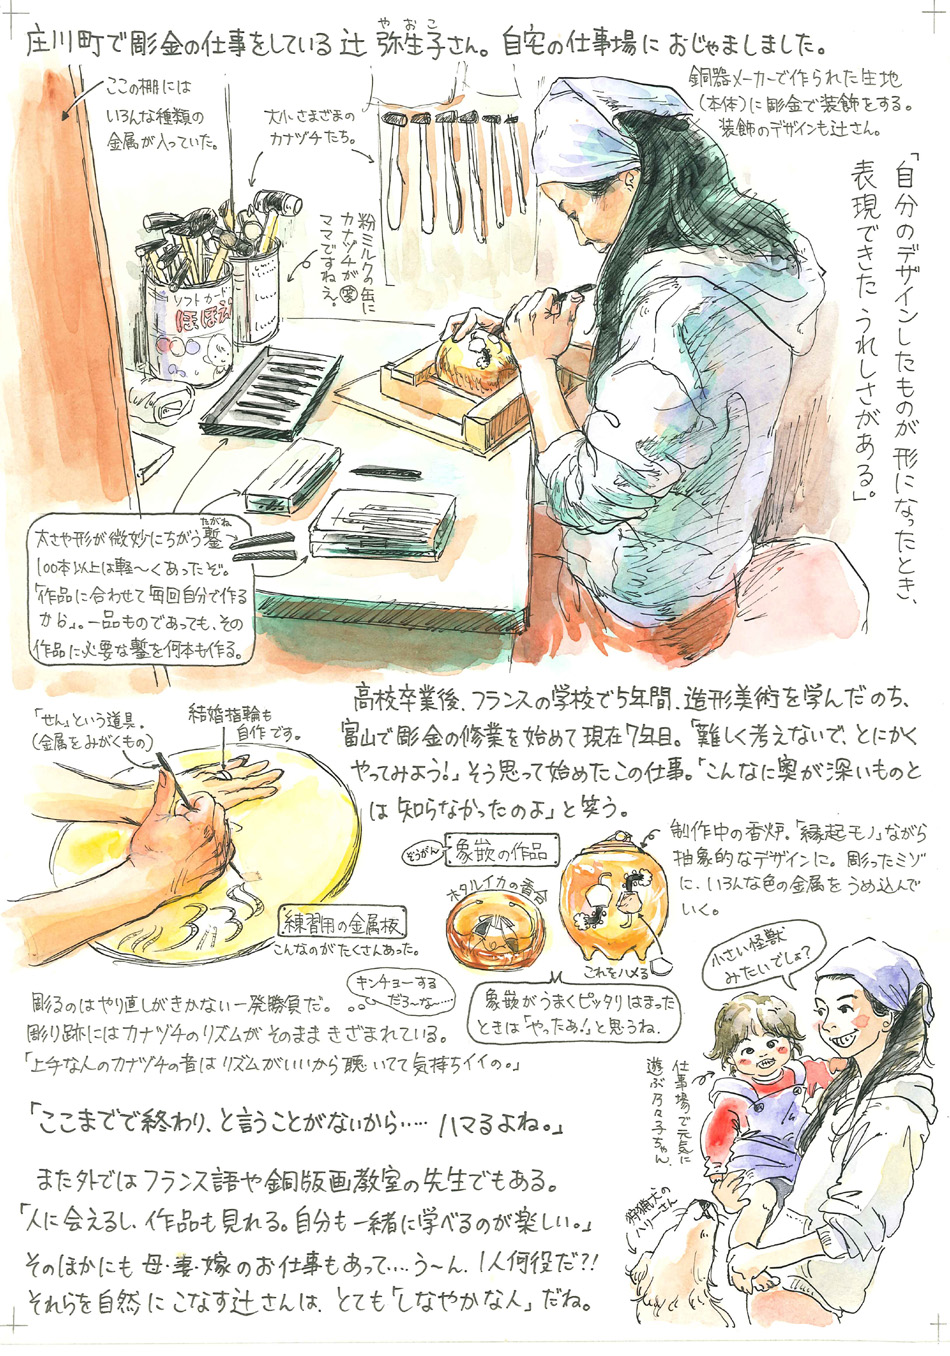 庄川町で彫金の仕事をしている辻 弥生子さん。自宅の仕事場に おじゃましました。
やおこ
ここの棚には
いろんな種類の
金属が入っていた。
大小さまざまの
カナヅチたち。
銅器メーカーで作られた生地
(本体)に彫金で装飾をする。
装飾のデザインも辻さん。
「自分のデザインしたものが形になったとき、
表現できたうれしさがある。」
粉ミルクの缶に
カナヅチが㊻
ママですねぇ。
ソフトカード
ほほえ
太さや形が微妙にちがう鏨
たがね
100本以上は軽〜くあったぞ。
「作品に合わせて毎回自分で作る
から」。一品ものであっても、その
作品に必要な鏨を何本も作る。
高校卒業後、フランスの学校で5年間、造形美術を学んだのち、
富山で彫金の修業を始めて現在7年目。「難しく考えないで、とにかく
やってみよう!」そう思って始めたこの仕事。「こんなに奥が深いものと
は知らなかったのよ」と笑う。
「せん」という道具。
(金属をみがくもの)
結婚指輪も
自作です。
練習用の金属板
こんなのがたくさんあった。
ぞうがん
象嵌の作品
ホタルイカの香合
制作中の香炉。「縁起モノ」ながら
抽象的なデザインに。彫ったミゾ
に、いろんな色の金属をうめ込んで
いく。
これをハメる
象嵌がうまくピッタリはまった
ときは「やったあ!」と思うね。
キンチョーする
だろ〜な…
彫るのはやり直しがきかない一発勝負だ。
彫り跡にはカナヅチのリズムがそのままきざまれている。
「上手な人のカナヅチの音はリズムがいいから聴いてて気持ちイイの。」
「ここまでで終わり、と言うことがないから…… ハマるよね。」
小さい怪獣
みたいでしょ?
仕事場で元気に
遊ぶ乃々子ちゃん
狩猟犬の
ハリーさん
また外ではフランス語や銅版画教室の先生でもある。
「人に会えるし、作品も見れる。自分も一緒に学べるのが楽しい。」
そのほかにも 母・妻・嫁のお仕事もあって‥‥う〜ん、1人何役だ?!
それらを自然にこなす辻さんは、とても「しなやかな人」だね。